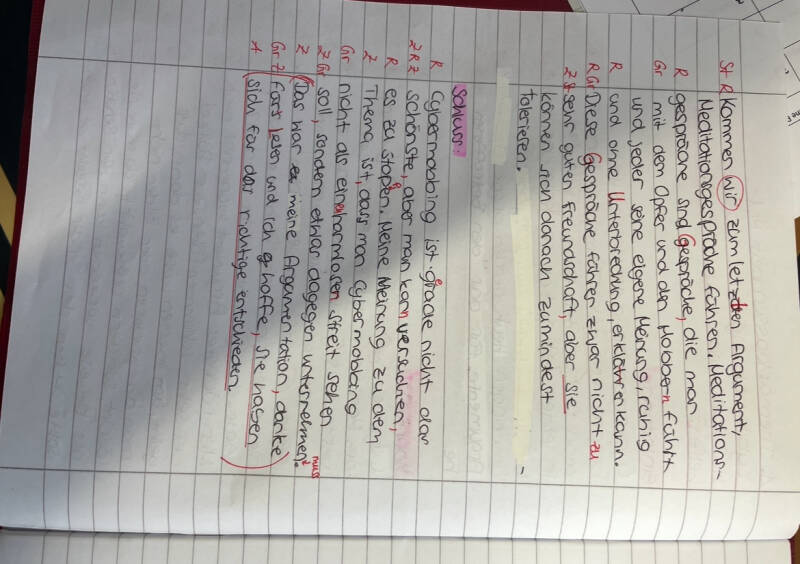 St R Kommen Wir zum letzten Argument,
Meditationsgespräche führen. Meditations-
R gespräche sind Gespräche, die man
Gr mit den Opfer und den Mobbern führt
und jeder seine eigene Meinung, ruhig
R und ohne Unterbrechung, erklären kann.
R Gr Diese Gespräche führen zwar nicht zu
Z sehr guten Freundschaft, aber sie
können sich danach zumindest
tolerieren.
Schluss:
R Cybermobbing ist grade nicht das
Z R Z schönste, aber man kann versuchen,
R es zu stopen. Meine Meinung zu dem
Z Thema ist, dass man Cybermobbing
Gr nicht als ein harmlosen Streit sehen
Z Gr soll, sondern etwas dagegen unternehmen.
muss
Z (Das war es meine Argumentation, danke
Gr Z fürs lesen und ich hoffe, Sie haben
A sich für das richtige entschieden.)